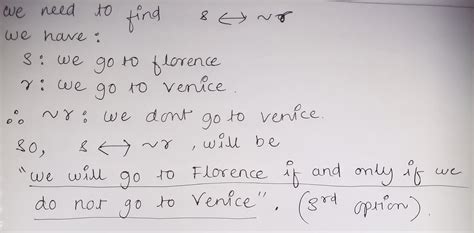 we need to find s ↔ ~r
we have:
s: we go to florence
r: we go to venice.
∴ ~r: we dont go to venice.
so, s ↔ ~r, will be
"we will go to Florence if and only if we
do not go to Venice". (3rd option).